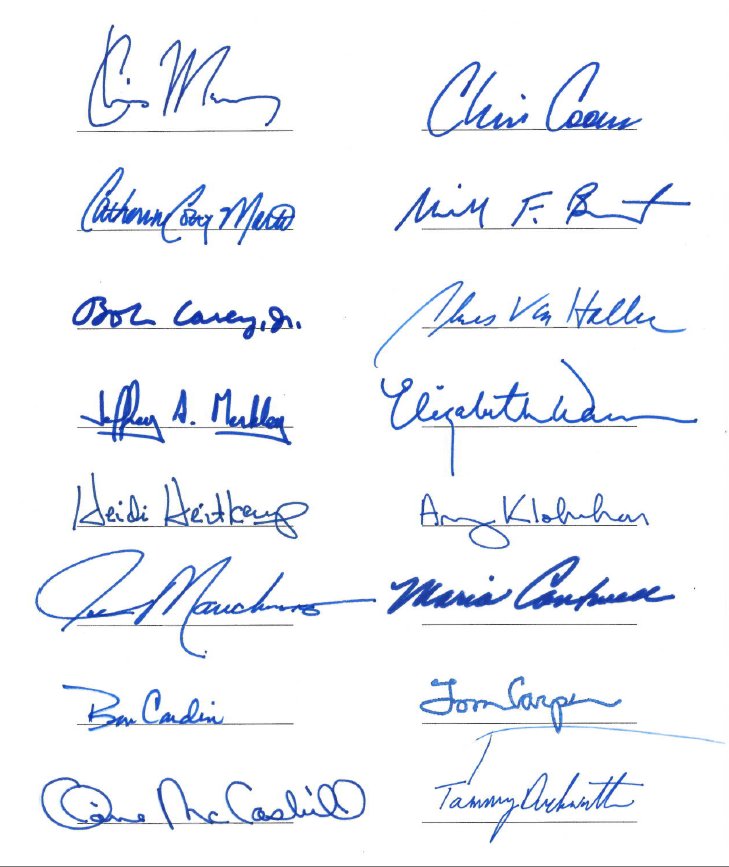 Chris Murphy
Chris Coons
Catherine Cortez Masto
F. Bennet
Bob Casey, Jr.
Chris Van Hollen
Jeffrey A. Merkley
Elizabeth Warren
Heidi Heitkamp
Amy Klobuchar
Joe Manchin
Maria Cantwell
Ben Cardin
Tom Carper
Claire McCaskill
Tammy Duckworth